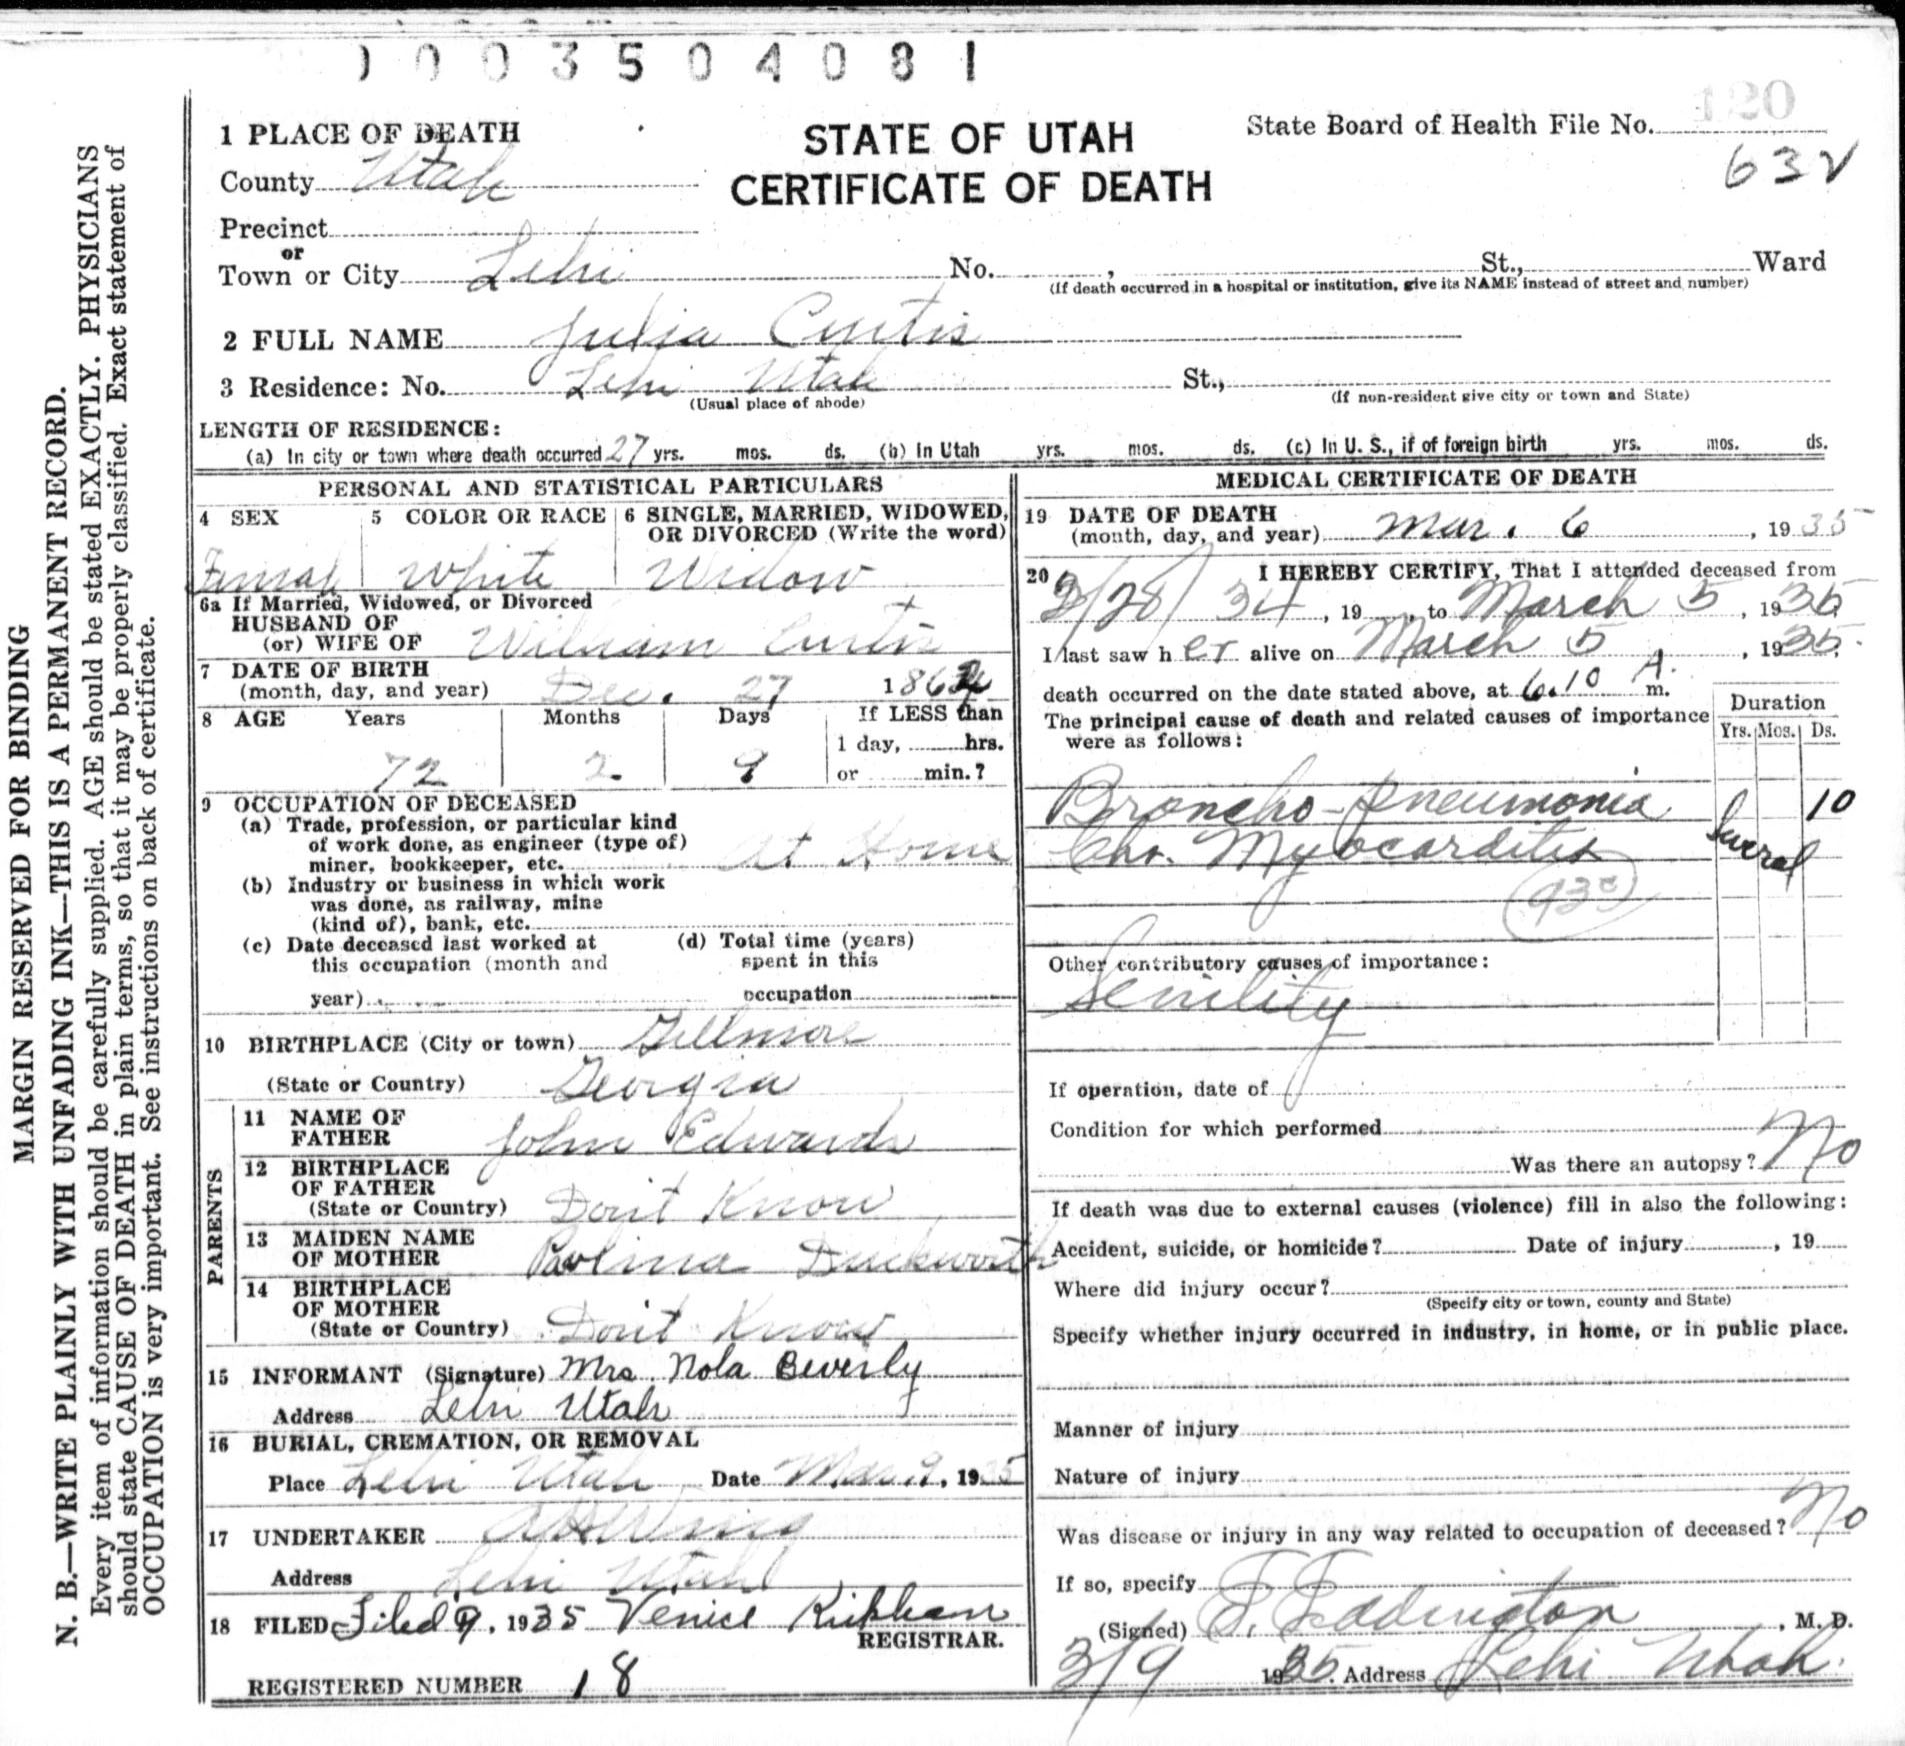 1003504081
120
1 PLACE OF DEATH
STATE OF UTAH
State Board of Health File No.
CERTIFICATE OF DEATH
63
County Utah
Precinct
or
Town or City Lehi No. , St., Ward
(If death occurred in a hospital or institution, give its NAME instead of street and number)
2 FULL NAME Julia Curtis
3 Residence: No. Lehi Utah St.,
(Usual place of abode) (If non-resident give city or town and State)
LENGTH OF RESIDENCE:
(a) In city or town where death occurred 27 yrs. mos. ds. (b) In Utah yrs. mos. ds. (c) In U. S., if of foreign birth yrs. mos. ds.
PERSONAL AND STATISTICAL PARTICULARS
4 SEX 5 COLOR OR RACE 6 SINGLE, MARRIED, WIDOWED,
OR DIVORCED (Write the word)
Female White Widow
6a If Married, Widowed, or Divorced
HUSBAND OF
(or) WIFE OF William Curtis
7 DATE OF BIRTH
(month, day, and year) Dec. 27 186
8 AGE Years Months Days If LESS than
1 day, hrs.
72 2 9 or min.?
9 OCCUPATION OF DECEASED
(a) Trade, profession, or particular kind
of work done, as engineer (type of)
miner, bookkeeper, etc. At Home
(b) Industry or business in which work
was done, as railway, mine
(kind of), bank, etc.
(c) Date deceased last worked at (d) Total time (years)
this occupation (month and spent in this
year) occupation
10 BIRTHPLACE (City or town) Gillmore
(State or Country) Georgia
PARENTS
11 NAME OF
FATHER John Edwards
12 BIRTHPLACE
OF FATHER
(State or Country) Don't Know
13 MAIDEN NAME
OF MOTHER Palina Duckworth
14 BIRTHPLACE
OF MOTHER
(State or Country) Don't Know
15 INFORMANT (Signature) Mrs. Nola Beverly
Address Lehi Utah
16 BURIAL, CREMATION, OR REMOVAL
Place Lehi Utah Date Mar. 9, 1935
17 UNDERTAKER Wing
Address Lehi Utah
18 FILED Filed 9, 1935 Venice Kirkham
REGISTRAR.
REGISTERED NUMBER 18
MEDICAL CERTIFICATE OF DEATH
19 DATE OF DEATH
(month, day, and year) Mar. 6, 1935
20 I HEREBY CERTIFY, That I attended deceased from
2/28/34, 19 , to March 5, 1935
I last saw her alive on March 5, 1935.
death occurred on the date stated above, at 6.10 A. m.
The principal cause of death and related causes of importance
were as follows:
Duration
Yrs. Mos. Ds.
Broncho-pneumonia 10
Chr. Myocarditis Several
93c
Other contributory causes of importance:
Senility
If operation, date of
Condition for which performed
Was there an autopsy? No
If death was due to external causes (violence) fill in also the following:
Accident, suicide, or homicide? Date of injury , 19
Where did injury occur?
(Specify city or town, county and State)
Specify whether injury occurred in industry, in home, or in public place.
Manner of injury
Nature of injury
Was disease or injury in any way related to occupation of deceased? No
If so, specify
(Signed) F. Eddington, M. D.
3/9 1935. Address Lehi Utah.
MARGIN RESERVED FOR BINDING
N. B.—WRITE PLAINLY WITH UNFADING INK—THIS IS A PERMANENT RECORD.
Every item of information should be carefully supplied. AGE should be stated EXACTLY. PHYSICIANS
should state CAUSE OF DEATH in plain terms, so that it may be properly classified. Exact statement of
OCCUPATION is very important. See instructions on back of certificate.